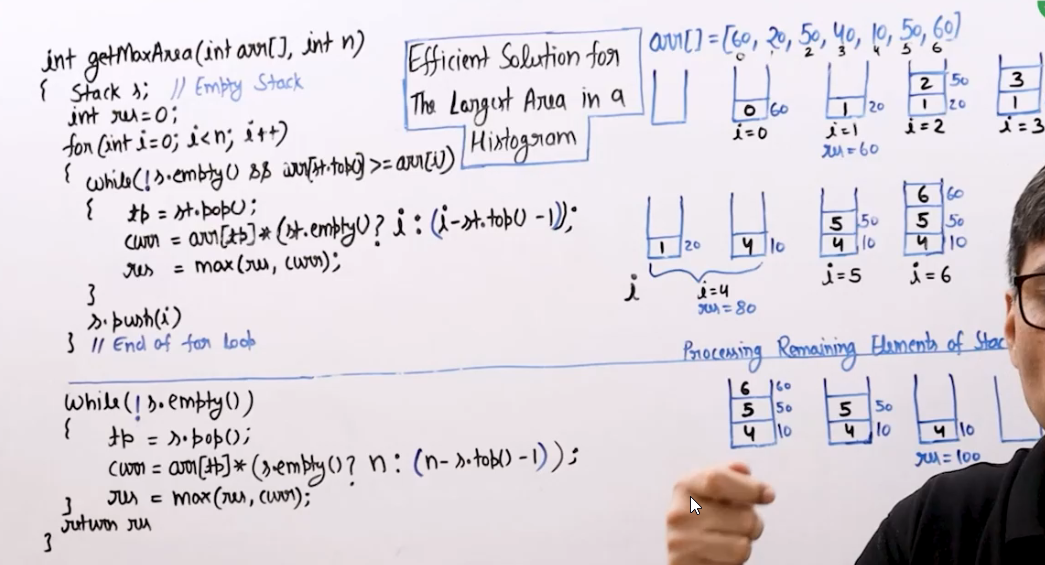 int getMaxArea(int arr[], int n)
{ Stack s; // Empty Stack
int res=0;
for(int i=0; i<n; i++)
{ while(!s.empty() && arr[st.top()] >= arr[i])
{ tp = st.pop();
curr = arr[tp]*(st.empty()? i : (i-st.top() -1));
res = max(res, curr);
}
s.push(i)
} // End of for loop
while(!s.empty())
{ tp = s.pop();
curr = arr[tp]*(s.empty()? n : (n-s.top() -1));
} res = max(res, curr);
return res
}
Efficient Solution for
The Largest Area in a
Histogram
arr[] = [60, 20, 50, 40, 10, 50, 60]
0 2 3 4 5 6
0 60
i=0
1 20
i=1
res=60
2 50
1 20
i=2
3
1
i=3
1 20
4 10
i
i=4
res=80
5 50
4 10
i=5
6 60
5 50
4 10
i=6
Processing Remaining Elements of Stac
6 60
5 50
4 10
5 50
4 10
4 10
res=100